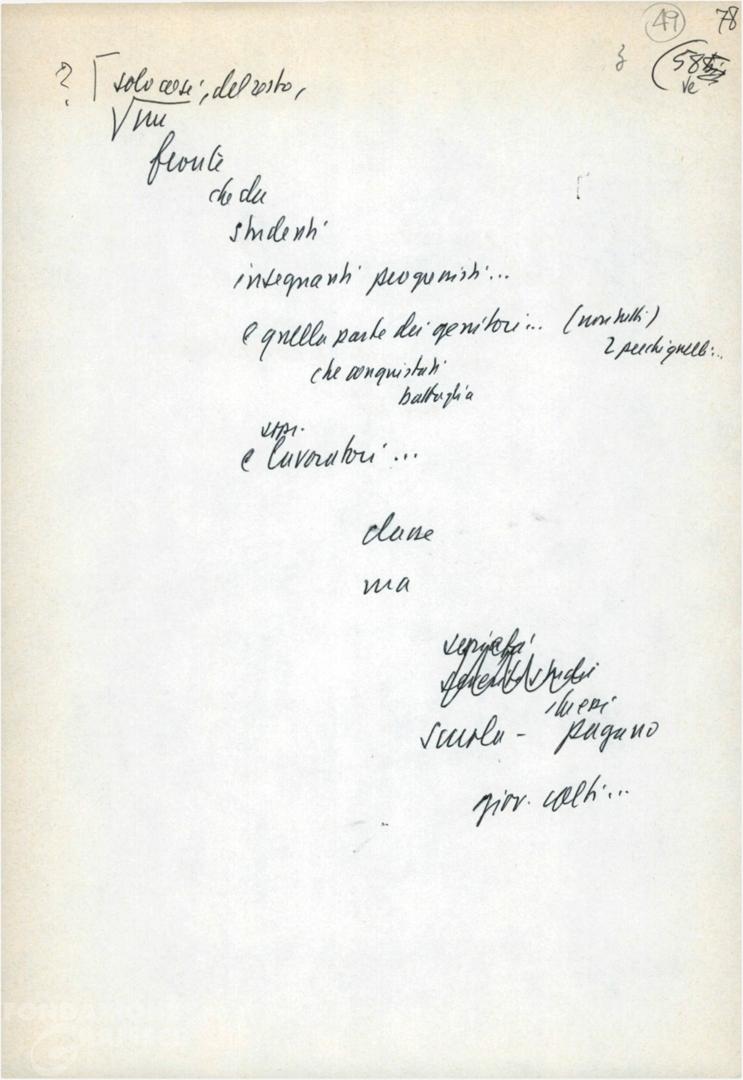 49 78
3 (58 bis
ve
? solo così, del resto,
un
fronte
che da
studenti
insegnanti progressisti...
e quella parte dei genitori... (non tutti)
2 perché quelli...
che conquistati
battaglia
e lavoratori...
classe
ma
serietà
studi
scuola - pagano
giov. colti...
FONDAZIONE